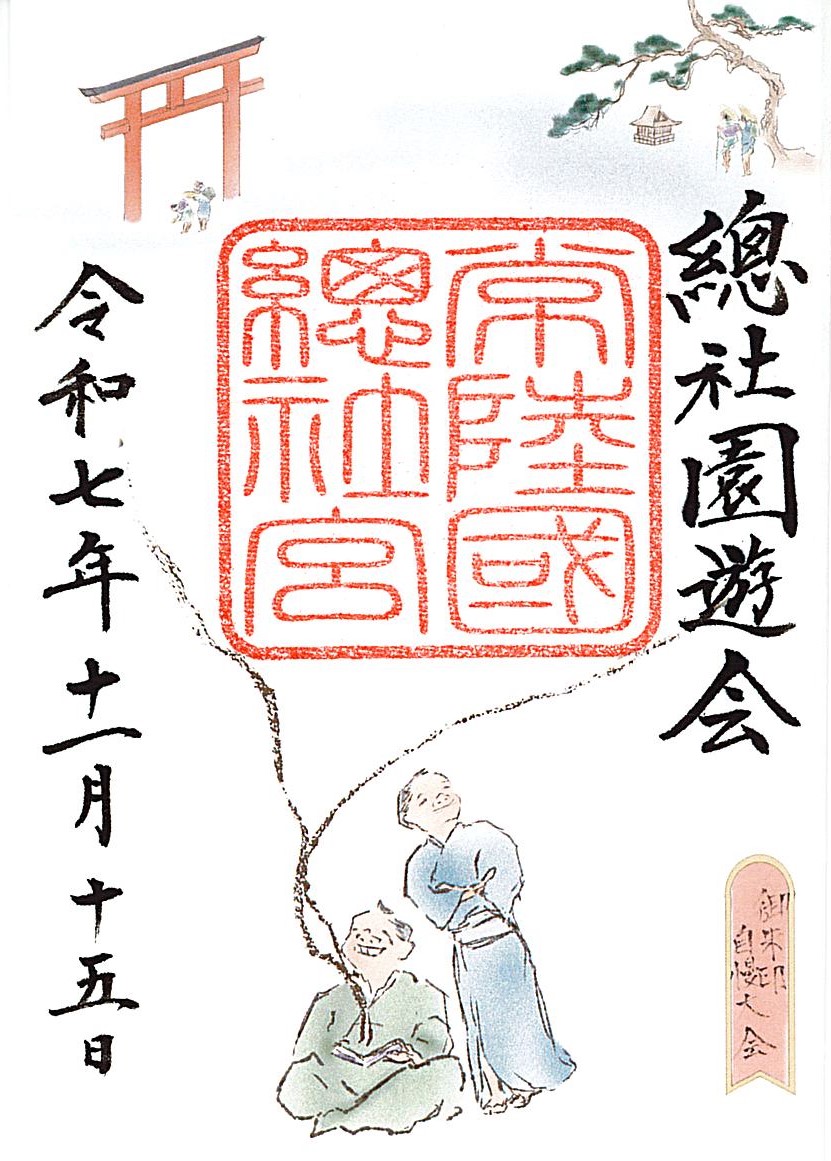 總社園遊会
常陸國
總社宮
令和七年十一月十五日
御朱印
自慢大会